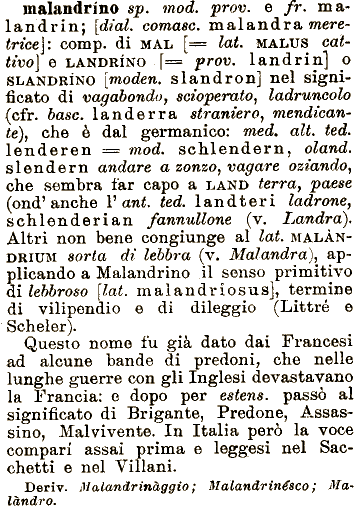 malandríno sp. mod. prov. e fr. ma-
landrin; [dial. comasc. malandra mere-
trice]: comp. di MAL [= lat. MALUS cat-
tivo] e LANDRÍNO [= prov. landrin] o
SLANDRÍNO [moden. slandron] nel signi-
ficato di vagabondo, scioperato, ladruncolo
(cfr. basc. landerra straniero, mendican-
te), che è dal germanico: med. alt. ted.
lenderen = mod. schlendern, oland.
slendern andare a zonzo, vagare oziando,
che sembra far capo a LAND terra, paese
(ond' anche l' ant. ted. landteri ladrone,
schlenderian fannullone (v. Landra).
Altri non bene congiunge al lat. MALÀN-
DRIUM sorta di lebbra (v. Malandra), ap-
plicando a Malandrino il senso primitivo
di lebbroso [lat. malandriosus], termine
di vilipendio e di dileggio (Littré e
Scheler).
Questo nome fu già dato dai Francesi
ad alcune bande di predoni, che nelle
lunghe guerre con gli Inglesi devastavano
la Francia: e dopo per estens. passò al
significato di Brigante, Predone, Assas-
sino, Malvivente. In Italia però la voce
comparí assai prima e leggesi nel Sac-
chetti e nel Villani.
Deriv. Malandrinàggio; Malandrinésco; Ma-
làndro.